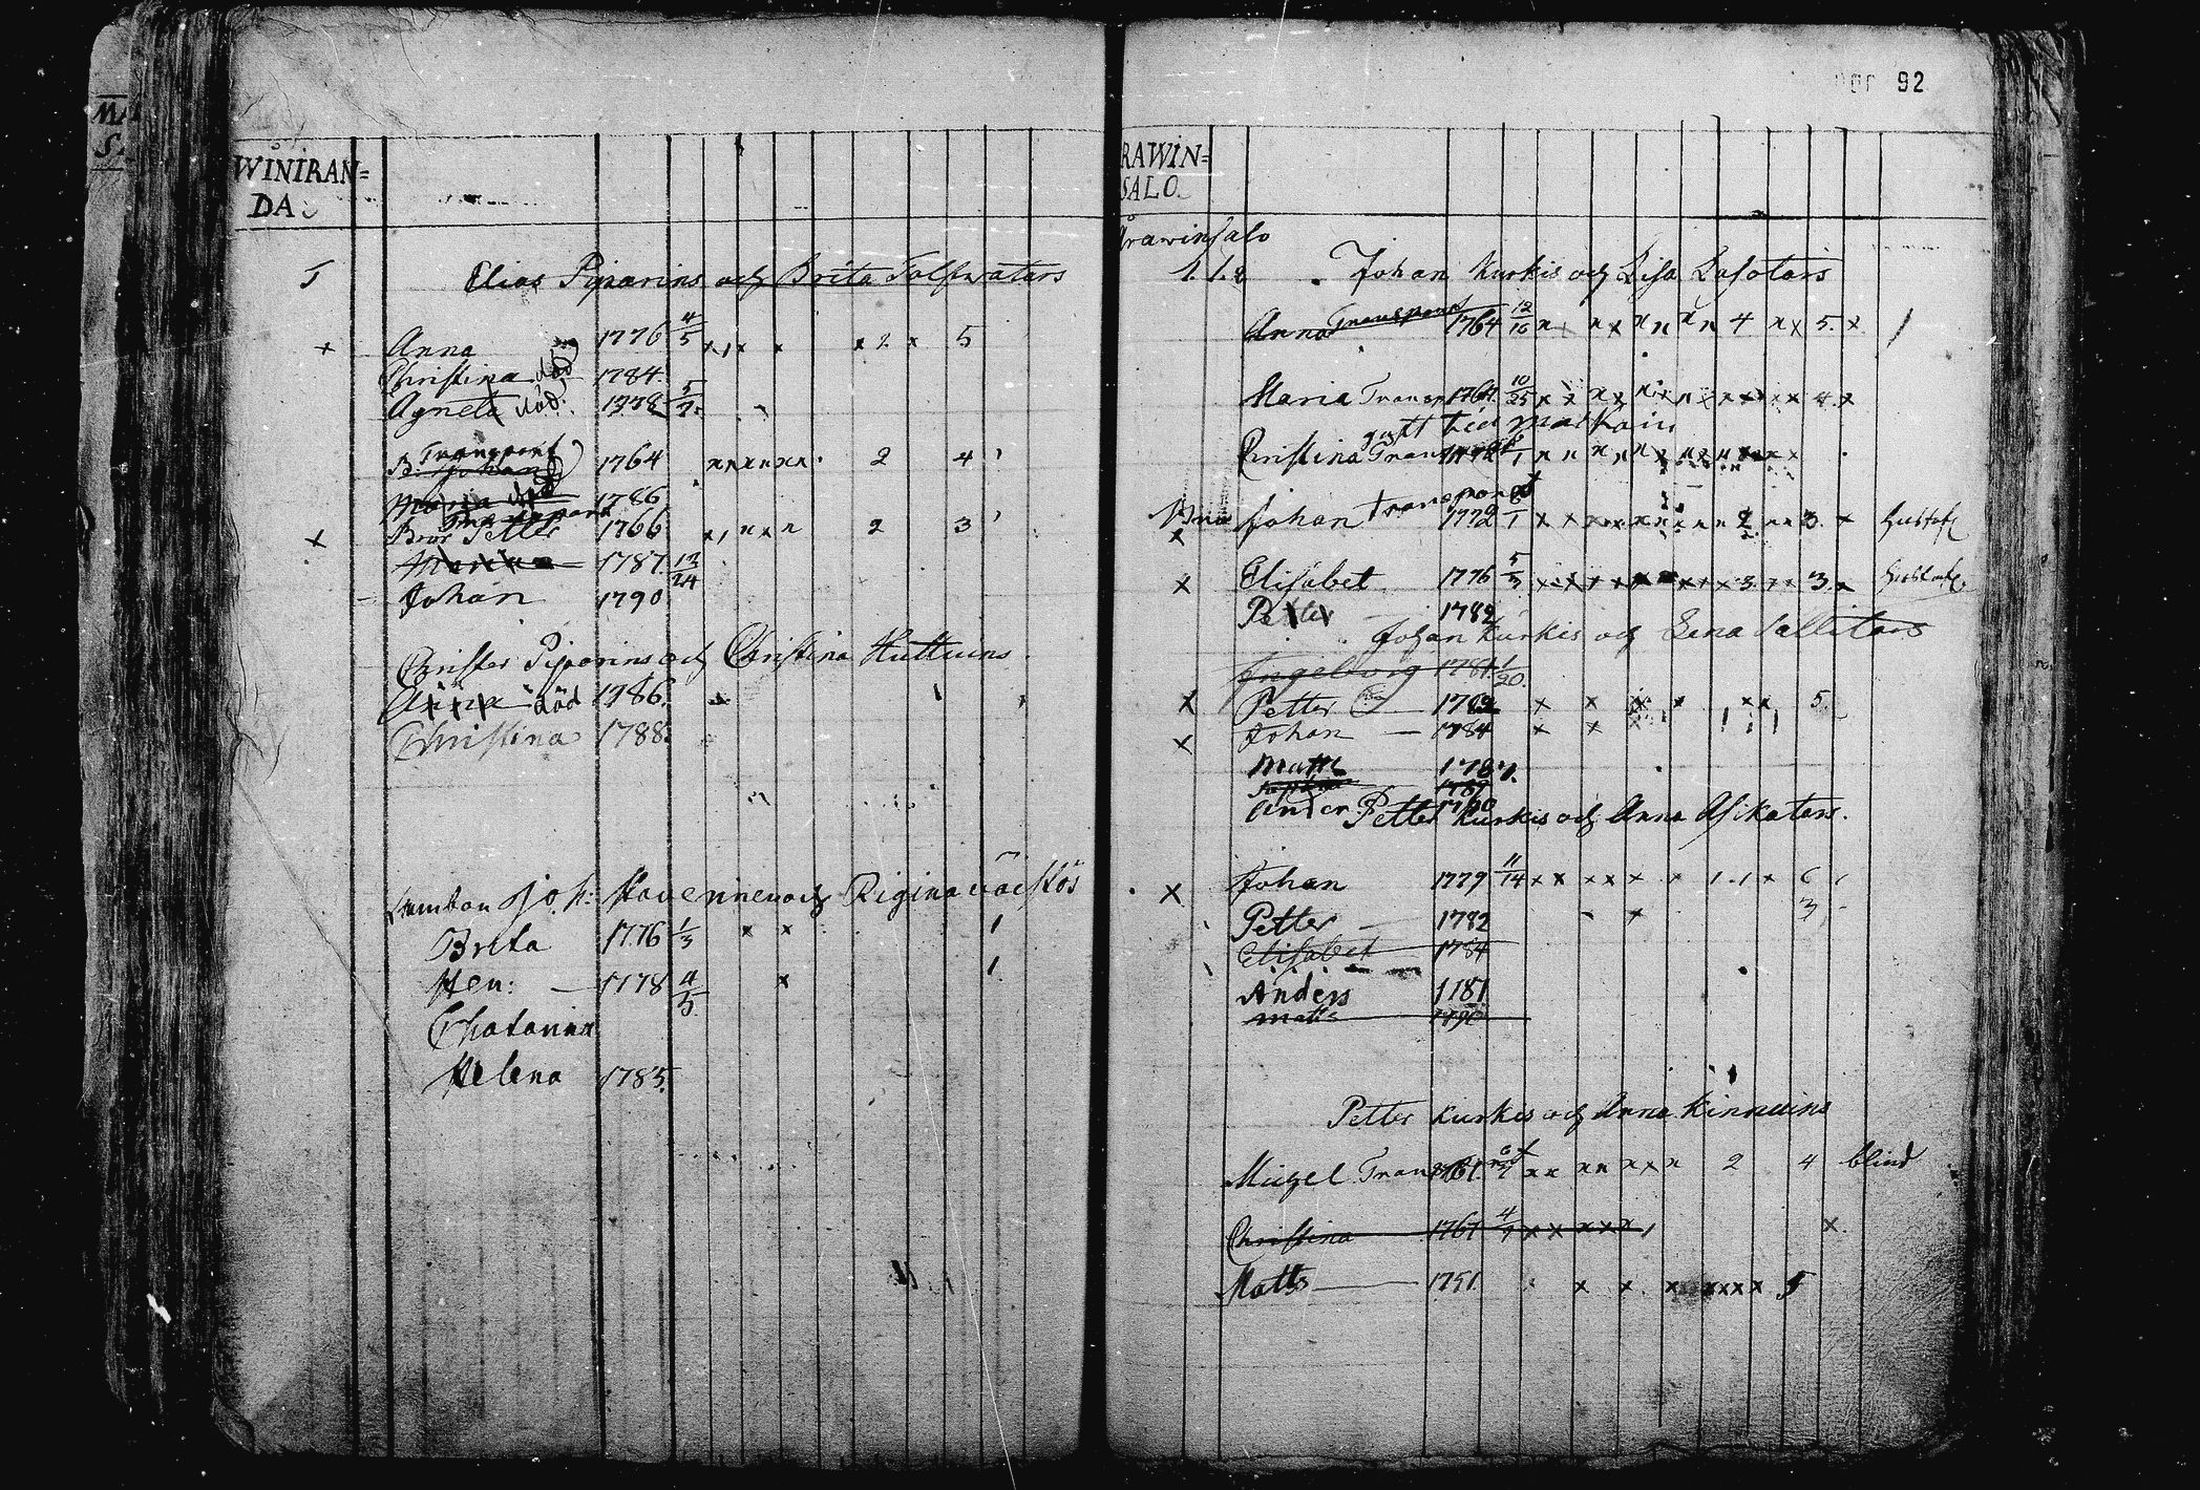 92
WINIRAN=
DA
5
Elias Piparins och Brita Tolfwatars
+ Anna 1776 4/5 x, x x x 2 x 5
Christina död 1784.
Agneta död. 1778 5/7.
Transport
B. Johan 1764 xxxxxx. 2 4
Maria död 1786
Transport
x Bror Petter 1766 x, x x x 2 3
1787. 12/24
Johan 1790
Christer Piparins och Christina Huttuins
Anna död 1786.
Christina 1788.
Joh: och Rigina
Brita 1776 1/3 x x 1
Hen: 1778 4/5 x 1
Chatarina
Helena 1785.
RAWIN=
SALO.
rawinsalo
1.1.2 Johan Kurkis och Lisa Lasotars
Anna Transport 1764 12/16 x x x x x x x 4 x x 5. x 1
Maria Transp 10/25 4. x
gift
Christina
Transport
Johan 1772 2 3. x
x Elisabet 1776 5/3 3 3. x
Petter 1782
Johan Kurkis och Lena Sallitars
Ingeborg 1781. 1/20.
x Petter 1782 x x x x x x 5.
x Johan 1784 x x x
Matts 1787.
1789
Ander 1790
Petter Kurkis och Anna Asikatars.
x Johan 1779 11/14 x x x x x x 1.1 x 6
Petter 1782 x 3
Elisabet 1784
Anders 1787
Matts 1790
Petter Kurkis och Anna Kinnuins
Michel Transp x x x x x x x 2 4 blind
Christina 1767 4/7 x x x x x x
Matts 1751. x x x x x x x 5